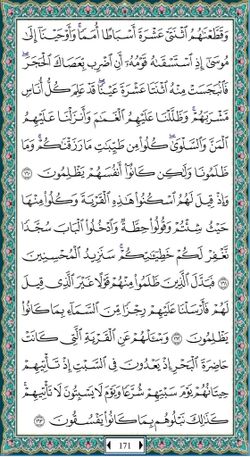 وَقَطَّعْنَٰهُمُ ٱثْنَتَىْ عَشْرَةَ أَسْبَاطًا أُمَمًا ۚ وَأَوْحَيْنَآ إِلَىٰ
مُوسَىٰٓ إِذِ ٱسْتَسْقَىٰهُ قَوْمُهُۥٓ أَنِ ٱضْرِب بِّعَصَاكَ ٱلْحَجَرَ ۖ
فَٱنۢبَجَسَتْ مِنْهُ ٱثْنَتَا عَشْرَةَ عَيْنًا ۖ قَدْ عَلِمَ كُلُّ أُنَاسٍ
مَّشْرَبَهُمْ ۚ وَظَلَّلْنَا عَلَيْهِمُ ٱلْغَمَٰمَ وَأَنزَلْنَا عَلَيْهِمُ
ٱلْمَنَّ وَٱلسَّلْوَىٰ ۖ كُلُوا۟ مِن طَيِّبَٰتِ مَا رَزَقْنَٰكُمْ ۚ وَمَا
ظَلَمُونَا وَلَٰكِن كَانُوٓا۟ أَنفُسَهُمْ يَظْلِمُونَ ١٦٠
وَإِذْ قِيلَ لَهُمُ ٱسْكُنُوا۟ هَٰذِهِ ٱلْقَرْيَةَ وَكُلُوا۟ مِنْهَا
حَيْثُ شِئْتُمْ وَقُولُوا۟ حِطَّةٌ وَٱدْخُلُوا۟ ٱلْبَابَ سُجَّدًا
نَّغْفِرْ لَكُمْ خَطِيٓـَٰٔتِكُمْ ۚ سَنَزِيدُ ٱلْمُحْسِنِينَ
١٦١ فَبَدَّلَ ٱلَّذِينَ ظَلَمُوا۟ مِنْهُمْ قَوْلًا غَيْرَ ٱلَّذِى قِيلَ
لَهُمْ فَأَرْسَلْنَا عَلَيْهِمْ رِجْزًا مِّنَ ٱلسَّمَآءِ بِمَا كَانُوا۟
يَظْلِمُونَ ١٦٢ وَسْـَٔلْهُمْ عَنِ ٱلْقَرْيَةِ ٱلَّتِى كَانَتْ
حَاضِرَةَ ٱلْبَحْرِ إِذْ يَعْدُونَ فِى ٱلسَّبْتِ إِذْ تَأْتِيهِمْ
حِيتَانُهُمْ يَوْمَ سَبْتِهِمْ شُرَّعًا وَيَوْمَ لَا يَسْبِتُونَ ۙ لَا تَأْتِيهِمْ ۚ
كَذَٰلِكَ نَبْلُوهُم بِمَا كَانُوا۟ يَفْسُقُونَ ١٦٣
171